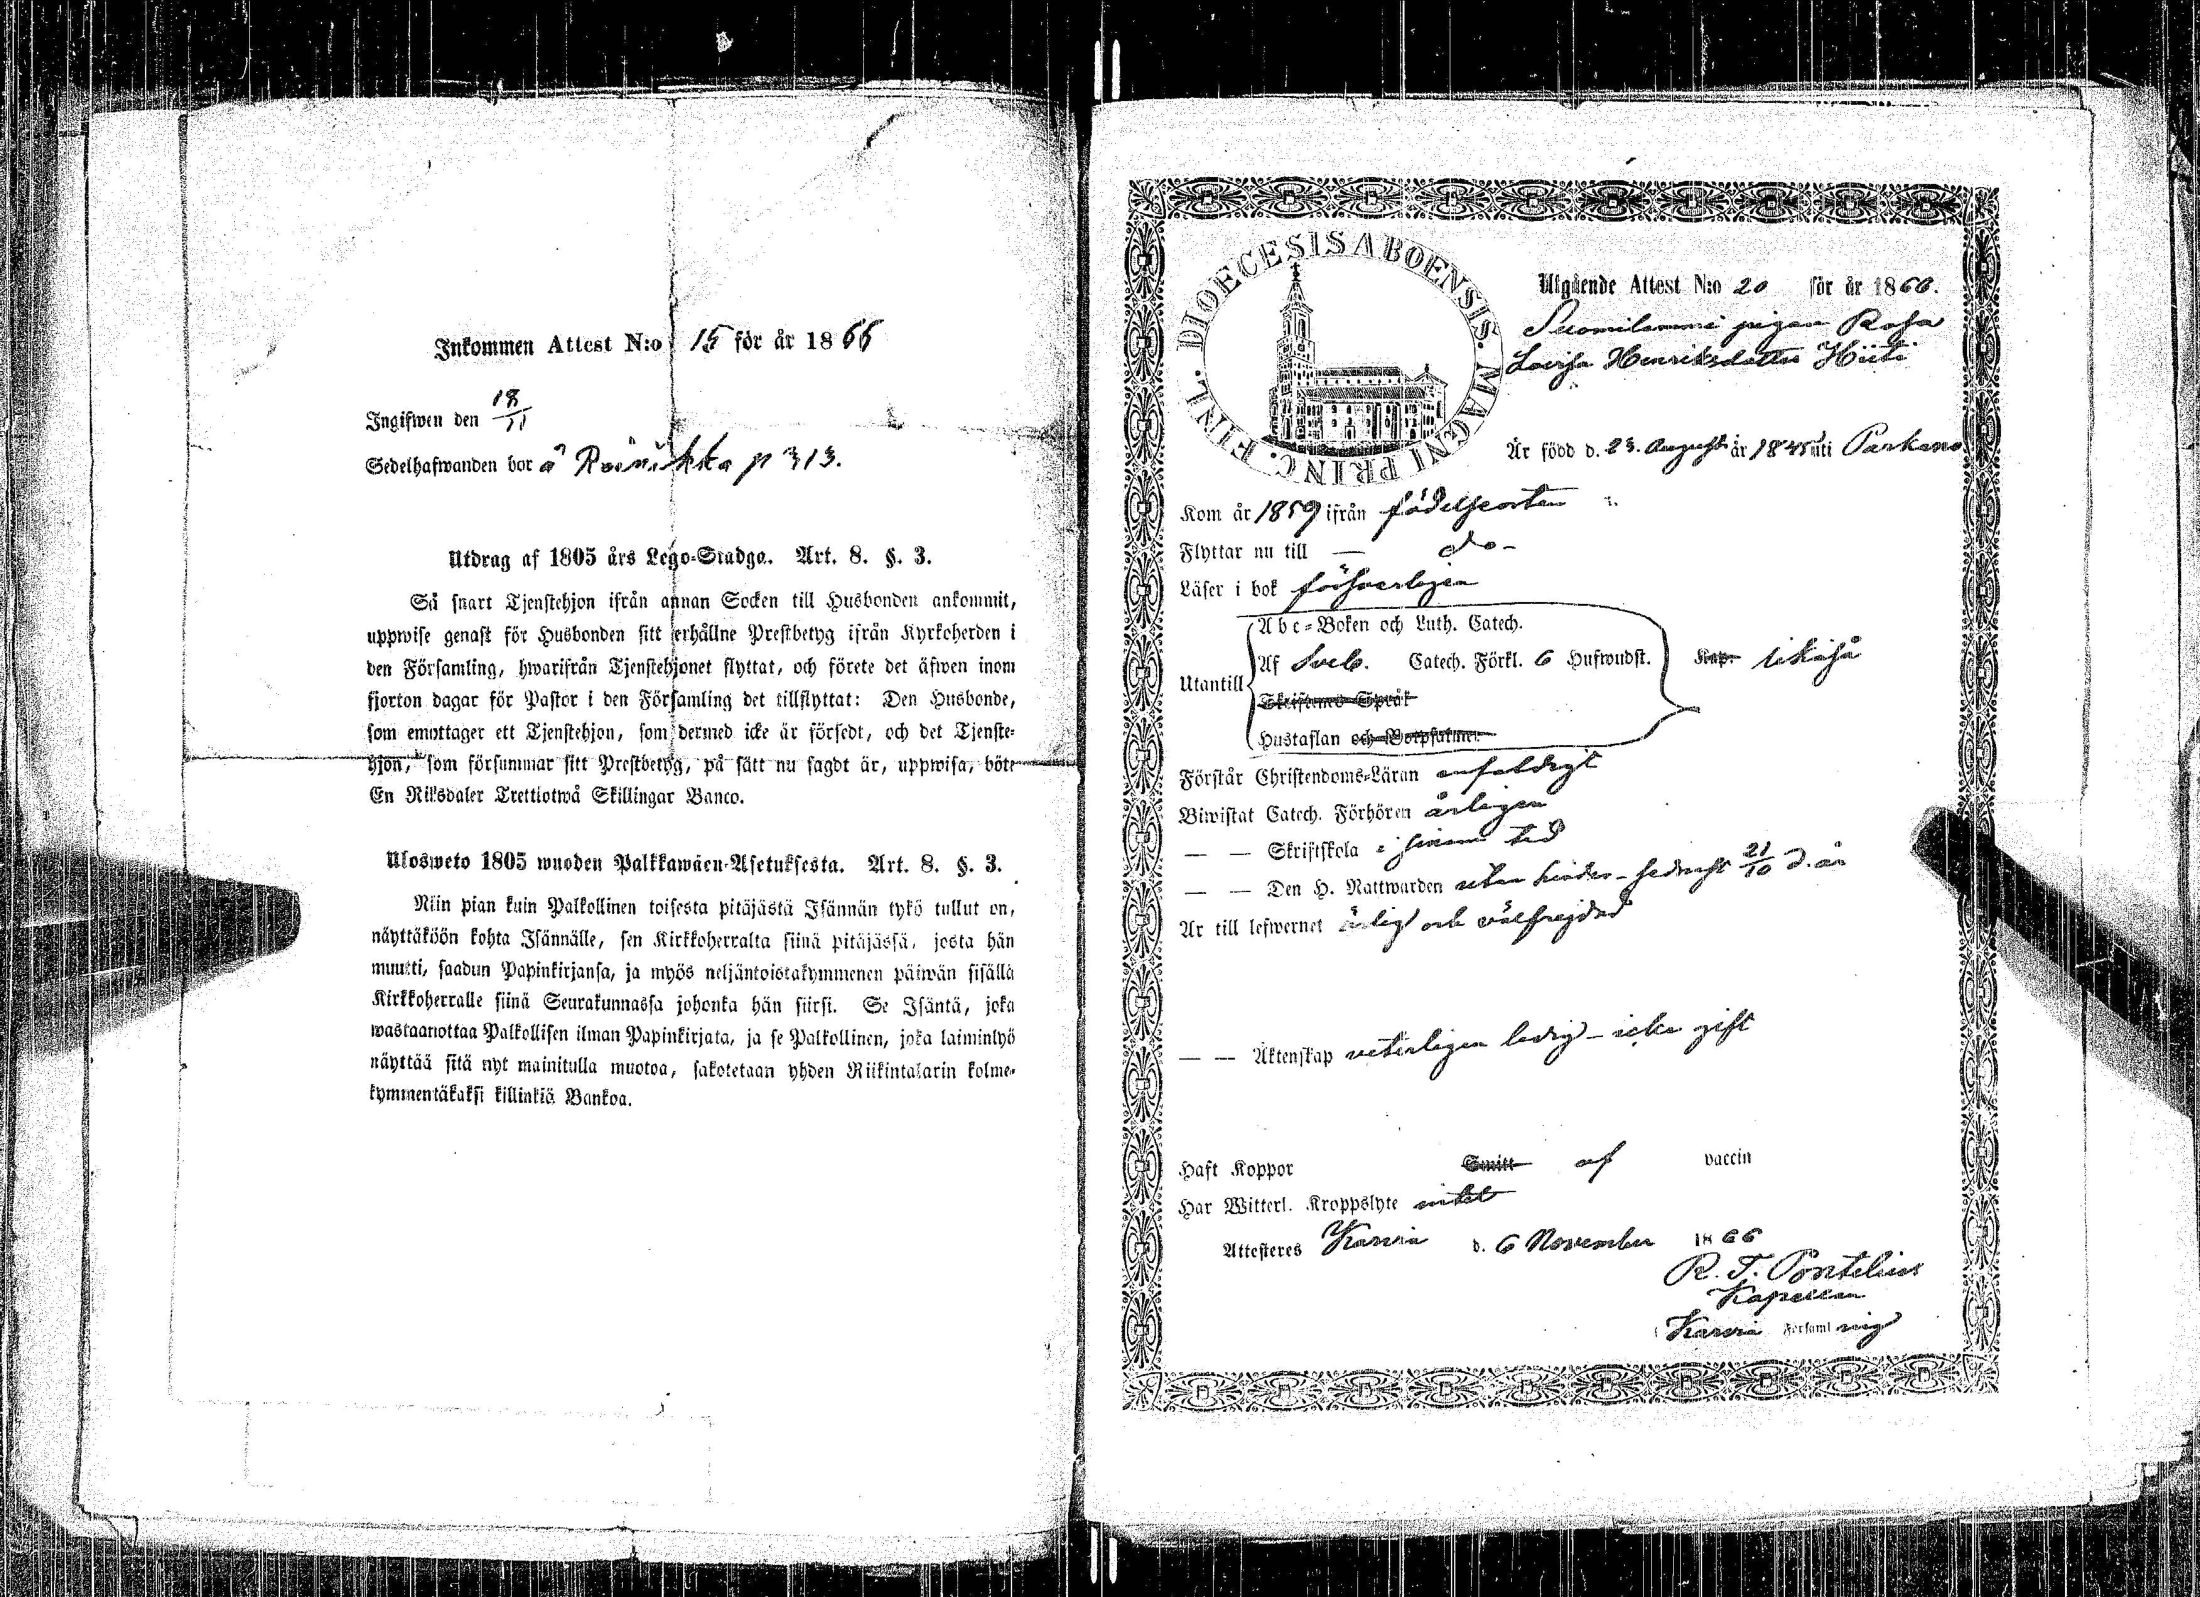 Inkommen Attest N:o 15 för år 1866
Ingifwen den 18/11
Sedelhafwanden bor å Roinikka p 313.
Utdrag af 1805 års Lego-Stadga. Art. 8. §. 3.
Så snart Tjenstehjon ifrån annan Socken till Husbonden ankommit,
uppwise genast för Husbonden sitt erhållne Prestbetyg ifrån Kyrkoherden i
den Församling, hwarifrån Tjenstehjonet flyttat, och förete det äfwen inom
fjorton dagar för Pastor i den Församling det tillflyttat: Den Husbonde,
som emottager ett Tjenstehjon, som dermed icke är försedt, och det Tjenste-
hjon, som försummar sitt Prestbetyg, på sätt nu sagdt är, uppwisa, böte
En Riksdaler Trettiotwå Skillingar Banco.
Ulosweto 1805 wuoden Palkkawäen-Asetuksesta. Art. 8. §. 3.
Niin pian kuin Palkollinen toisesta pitäjästä Isännän tykö tullut on,
näyttäköön kohta Isännälle, sen Kirkkoherralta siinä pitäjässä, josta hän
muutti, saadun Papinkirjansa, ja myös neljäntoistakymmenen päiwän sisällä
Kirkkoherralle siinä Seurakunnassa johonka hän siirsi. Se Isäntä, joka
wastaanottaa Palkollisen ilman Papinkirjata, ja se Palkollinen, joka laiminlyö
näyttää sitä nyt mainitulla muotoa, sakotetaan yhden Riikintalarin kolme-
kymmentäkaksi killinkiä Bankoa.
DIOECESIS ABOENSIS. MAGNI PRINC. FINL.
Utgående Attest N:o 20 för år 1866.
Suomilammi pigan Rosa
Lovisa Henriksdotter Hiiti
Är född d. 23. August år 1845 uti Parkano
Kom år 1859 ifrån födelseorten
Flyttar nu till — do -
Läser i bok försvarligen
Abc-Boken och Luth. Catech.
Utantill Af Sveb. Catech. Förkl. 6 Hufwudst. Kap. likaså
Skriftenes Språk
Hustaflan och Botpsalmer
Förstår Christendoms-Läran enfaldigt
Biwistat Catech. Förhören årligen
— — Skriftskola i sinom tid
— — Den H. Nattwarden utan hinder - sednast 21/10 d. år
Är till lefwernet ärlig och välfrejdad
— — Äktenskap veterligen ledig - icke gift
Haft Koppor Smitt af vaccin
Har Witterl. Kroppslyte intet
Attesteres Karvia d. 6 November 1866
R. T. Pontelius
Kapellan
i Karvia Församl ning